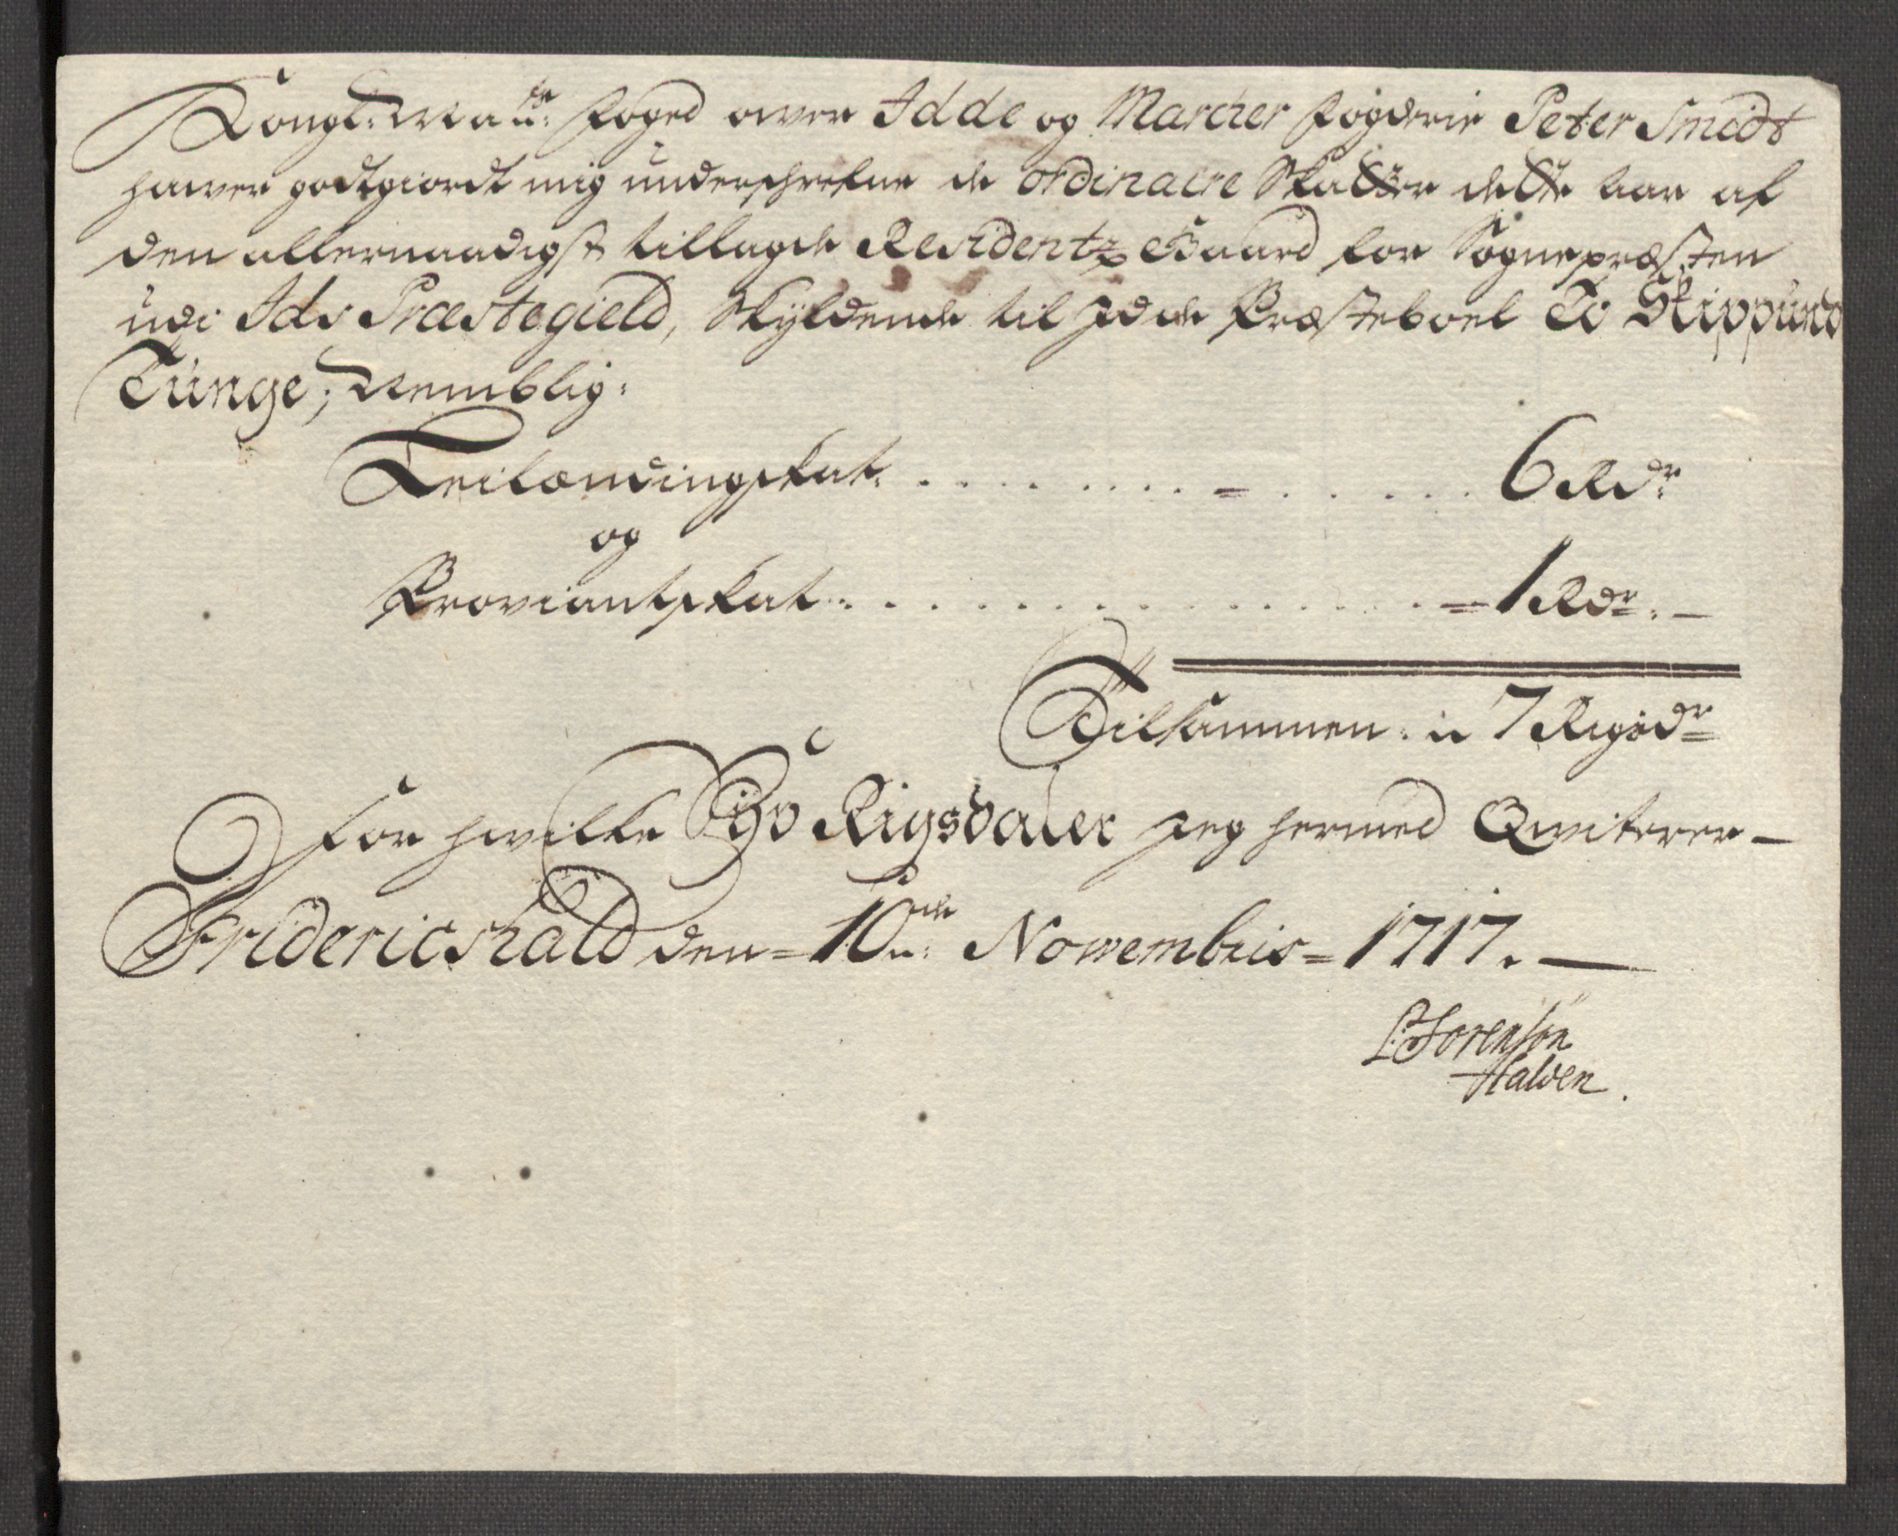 Kongl: Ma:ts foged over Idde og Marcher fogderie Peter Smidt
hawer godtgiordt mig underschrefne de ordinaire Skatter dette aar af
den allernaadigst tillagde Residentz Gaard for Sognepræsten
udi Ids Præstegield, Skyldende til Idde Præsteboel To Skippund
Tunge; Nemblig:
Leilændingskat: . . . . . . . . . . . . . 6 Rdr
og
Proviantskat: . . . . . . . . . . . . . . = 1 Rdr: —
Tilsammen: 7 Rigsdr
For hvilke Syv Rigsdaler jeg hermed Qviterer —
Fridericshald den = 10de: Novembris = 1717. —
P: Sørensøn
Halden.